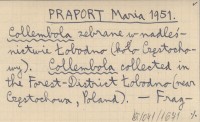 PRAPORT Maria 1951.
Collembola zebrane w nadleś-
nictwie Łobodno (koło Częstocho-
wy). Collembola collected in
the Forest-District Łobodno (near
Częstochowa, Poland). — Frag